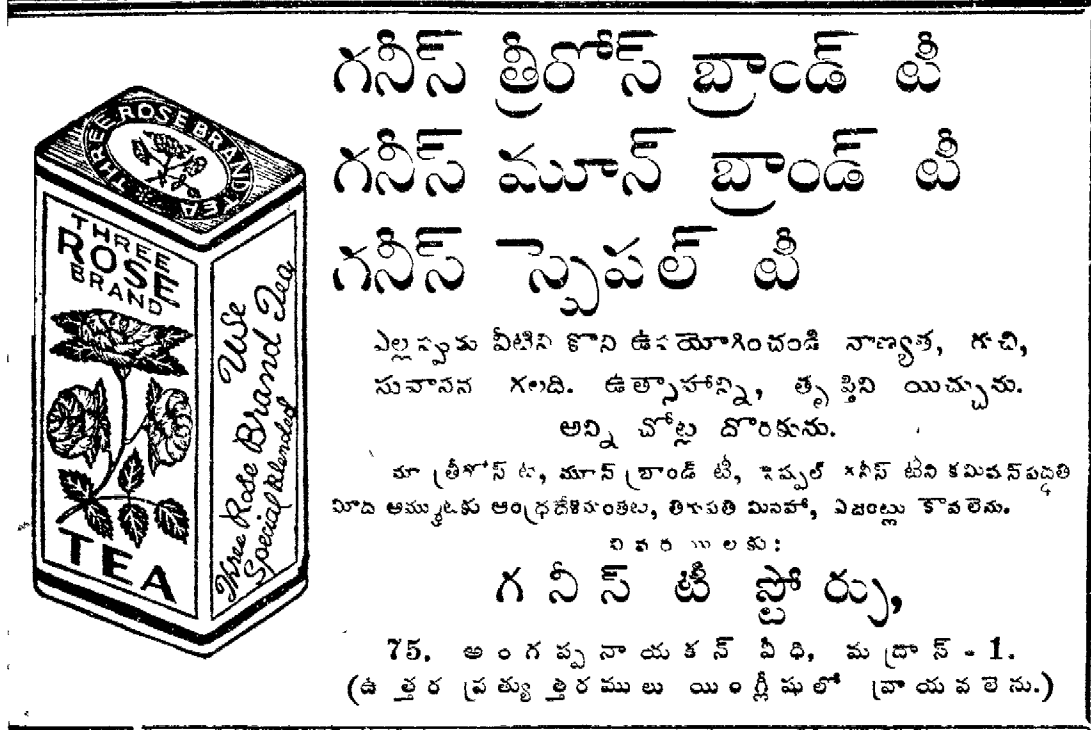 THREE ROSE BRAND TEA
THREE
ROSE
BRAND
TEA
Use
Three Rose Brand Tea
Special Blended
గనీస్ త్రీరోస్ బ్రాండ్ టీ
గనీస్ మూన్ బ్రాండ్ టీ
గనీస్ స్పెషల్ టీ
ఎల్లప్పుడు వీటిని కొని ఉపయోగించండి నాణ్యత, రుచి,
సువాసన గలది. ఉత్సాహాన్ని, తృప్తిని యిచ్చును.
అన్ని చోట్ల దొరికును.
మా త్రీరోస్ టీ, మూన్ బ్రాండ్ టీ, గనీస్ టీని కమిషన్ పద్ధతి
మీద అమ్ముటకు ఆంధ్రదేశమంతట, తిరుపతి మినహా, ఏజంట్లు కావలెను.
వివరములకు:
గనీస్ టీ స్టోర్సు,
75, అంగప్పనాయకన్ వీధి, మద్రాస్-1.
(ఉత్తర ప్రత్యుత్తరములు యింగ్లీషులో వ్రాయవలెను.)